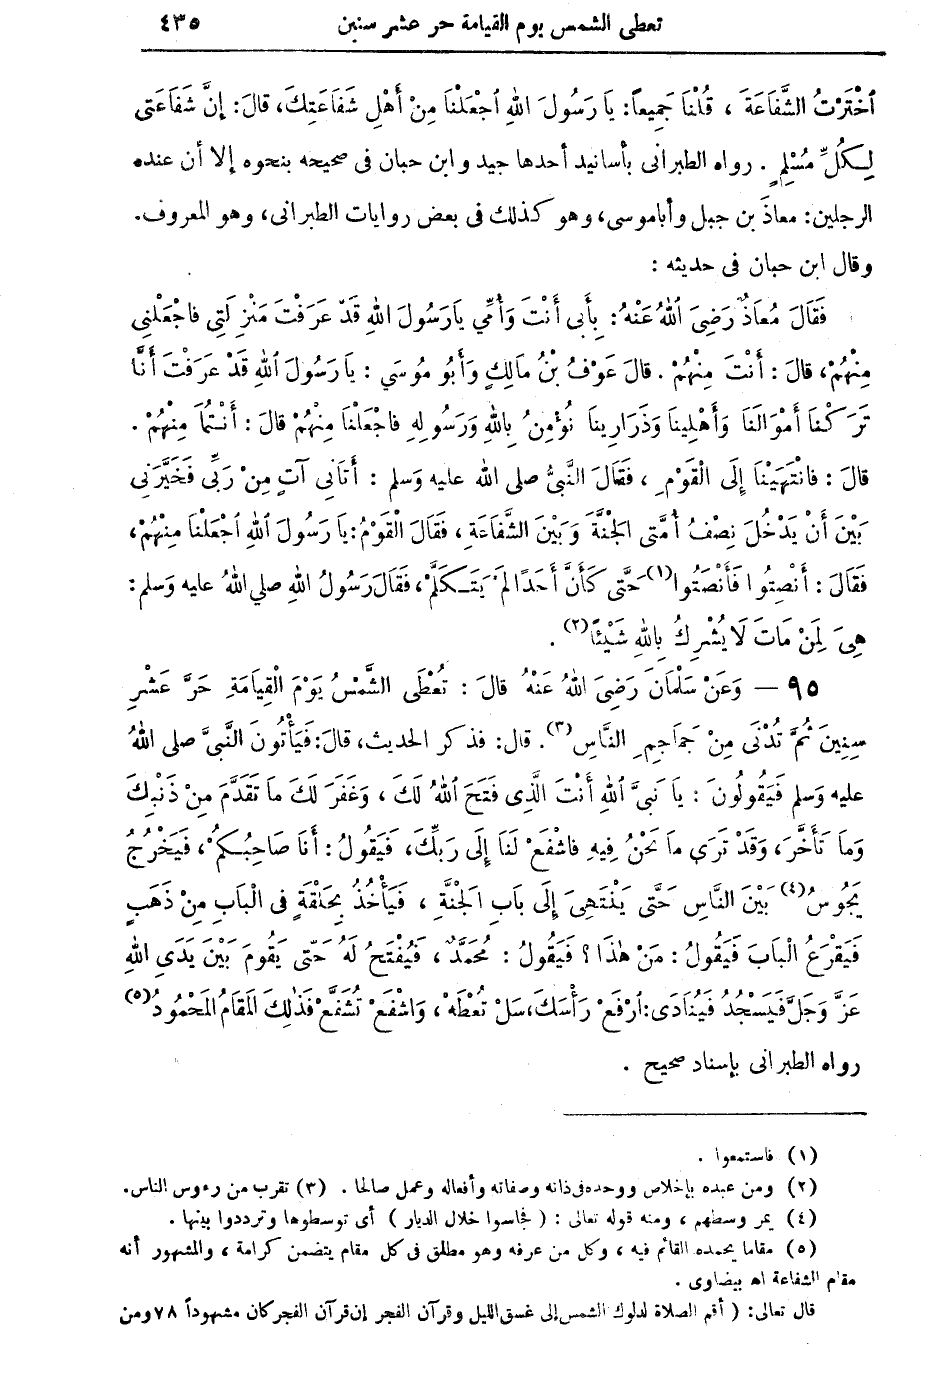 تعطى الشمس يوم القيامة حر عشر سنين ٤٣٥
ٱخْتَرْتُ الشَّفَاعَةَ ، قُلْنَا جَمِيعاً: يا رَسُولَ اللهِ ٱجْعَلْنَا مِنْ أَهْلِ شَفَاعَتِكَ، قالَ: إنَّ شَفَاعَتى
لِكُلِّ مُسْلِمٍ . رواه الطبرانى بأسانيد أحدها جيد وابن حبان فى صحيحه بنحوه إلا أن عنده
الرجلين: معاذَ بن جبل وأباموسى، وهو كذلك فى بعض روايات الطبرانى، وهو المعروف.
وقال ابن حبان فى حديثه :
فَقَالَ مُعَاذٌ رَضِىَ اللهُ عَنْهُ: بِأَبى أَنْتَ وَأُمِّي يارَسُولَ اللهِ قَدْ عَرَفْتَ مَنْزِلَتِى فاجْعَلْنِى
مِنْهُمْ، قالَ : أَنْتَ مِنْهُمْ . قالَ عَوْفُ بْنُ مالِكٍ وَأَبُو مُوسَي : يا رَسُولَ اللهِ قَدْ عَرَفْتَ أَنَّا
تَرَكْنا أَمْوَالَنَا وَأَهْلِينا وَذَرَارِينا نُؤْمِنُ بِاللهِ وَرَسُولِهِ فاجْعَلْنا مِنْهُمْ قالَ : أَنْتُما مِنْهُمْ .
قالَ : فانْتَهَيْنَا إِلَى الْقَوْمِ ، فَقَالَ النَّبِىُّ صلى الله عليه وَسلم : أَتَانِى آتٍ مِنْ رَبِّى فَخَيَّرَنِى
بَيْنَ أَنْ يَدْخُلَ نِصْفُ أُمَّتى الْجَنَّةَ وَبَيْنَ الشَّفَاعَةِ ، فَقَالَ الْقَوْمُ: يا رَسُولَ اللهِ ٱجْعَلْنَا مِنْهُمْ،
فَقَالَ : أَنْصِتُوا فَأَنْصَتُوا(١) حَتَّى كَأَنَّ أَحَدًا لَمْ يَتَكَلَّمْ، فَقَالَ رَسُولُ اللهِ صلي اللهُ عليه وَسلم :
هِىَ لِمَنْ مَاتَ لَا يُشْرِكُ بِاللهِ شَيْئًا(٢) .
٩٥ — وَعَنْ سَلْمَانَ رَضِىَ اللهُ عَنْهُ قالَ : تُعْطَى الشَّمْسُ يَوْمَ الْقِيَامَةِ حَرَّ عَشْرِ
سِنِينَ ثُمَّ تُدْنَى مِنْ جَمَاجِمِ النَّاسِ(٣). قال: فذكر الحديث، قالَ: فَيَأْتُونَ النَّبىَّ صلى اللهُ
عليه وَسلم فَيَقُولُونَ : يا نَبىَّ اللهِ أَنْتَ الَّذِى فَتَحَ اللهُ لَكَ ، وَغَفَرَ لَكَ ما تَقَدَّمَ مِنْ ذَنْبِكَ
وَمَا تَأَخَّرَ، وَقَدْ تَرَى ما نَحْنُ فِيهِ فاشْفَعْ لَنَا إِلَى رَبِّكَ، فَيَقُولُ : أَنَا صَاحِبُكُمْ، فَيَخْرُجُ
يَجُوسُ(٤) بَيْنَ النَّاسِ حَتَّى يَنْتَهِىَ إِلَى بَابِ الْجَنَّةِ ، فَيَأْخُذُ بِحَلْقَةٍ فِى الْبَابِ مِنْ ذَهَبٍ
فَيَقْرَعُ الْبَابَ فَيَقُولُ : مَنْ هٰذَا ؟ فَيَقُولُ : مُحَمَّدٌ ، فَيُفْتَحُ لَهُ حَتّى يَقُومَ بَيْنَ يَدَىِ اللهِ
عَزَّ وَجَلَّ فَيَسْجُدُ فَيُنَادَى: ٱرْفَعْ رَأْسَكَ، سَلْ تُعْطَهْ ، وَاشْفَعْ تُشَفَّعْ فَذٰلِكَ الْمَقَامُ الْمَحْمُودُ(٥)
رواه الطبرانى بإسناد صحيح .
(١) فاستمعوا .
(٢) ومن عبده بإخلاص ووحده فى ذاته وصفاته وأفعاله وعمل صالحا . (٣) تقرب من رءوس الناس.
(٤) يمر وسطهم ، ومنه قوله تعالى : ( فجاسوا خلال الديار ) أى توسطوها وترددوا بينها .
(٥) مقاما يحمده القائم فيه ، وكل من عرفه وهو مطلق فى كل مقام يتضمن كرامة ، والمشهور أنه
مقام الشفاعة اه بيضاوى .
قال تعالى: ( أقم الصلاة لدلوك الشمس إلى غسق الليل وقرآن الفجر إن قرآن الفجر كان مشهوداً ٧٨ ومن